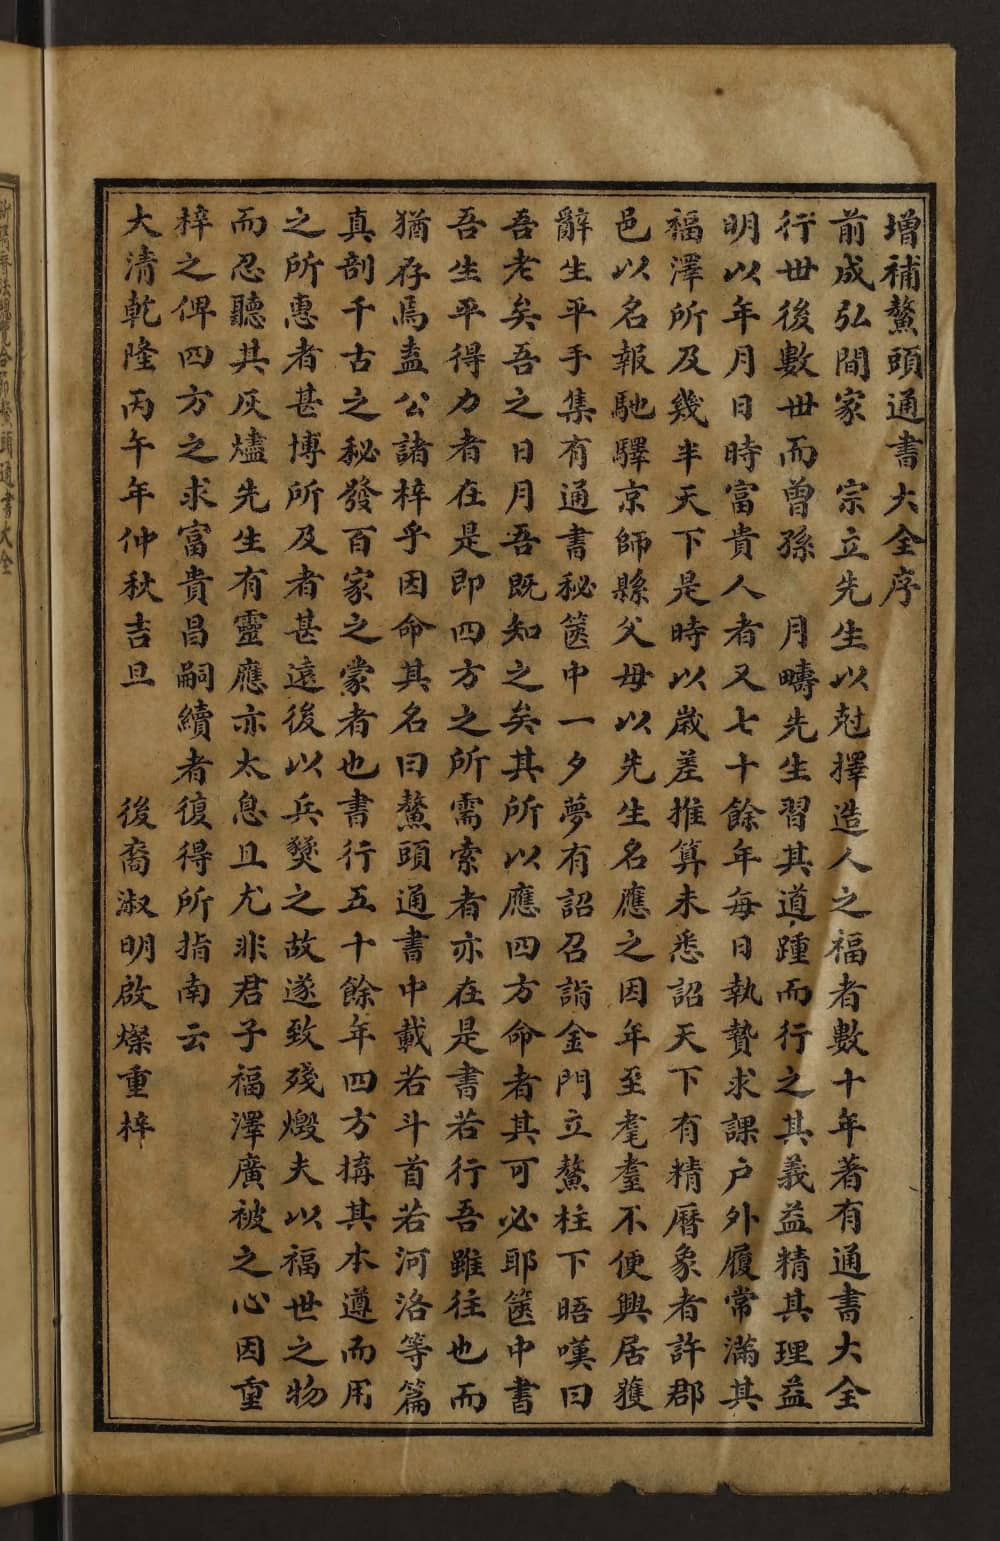 增補鰲頭通書大全序
前成弘間家　宗立先生以尅擇造人之福者數十年著有通書大全
行世後數世而曾孫　月疇先生習其道踵而行之其義益精其理益
明以年月日時富貴人者又七十餘年每日執贄求課户外履常滿其
福澤所及幾半天下是時以歲差推算未悉詔天下有精曆象者許郡
邑以名報馳驛京師縣父母以先生名應之因年至耄耋不便興居獲
辭生平手集有通書秘篋中一夕夢有詔召詣金門立鰲柱下晤嘆曰
吾老矣吾之日月吾既知之矣其所以應四方命者其可必耶篋中書
吾生平得力者在是即四方之所需索者亦在是書若行吾雖往也而
猶存焉盍公諸梓乎因命其名曰鰲頭通書中載若斗首若河洛等篇
真剖千古之秘發百家之蒙者也書行五十餘年四方搆其本遵而用
之所惠者甚博所及者甚遠後以兵燹之故遂致殘燬夫以福世之物
而忍聽其灰燼先生有靈應亦太息且尤非君子福澤廣被之心因重
梓之俾四方之求富貴昌嗣續者復得所指南云
大清乾隆丙午年仲秋吉旦　　後裔淑明啟燦重梓
頭通書大全